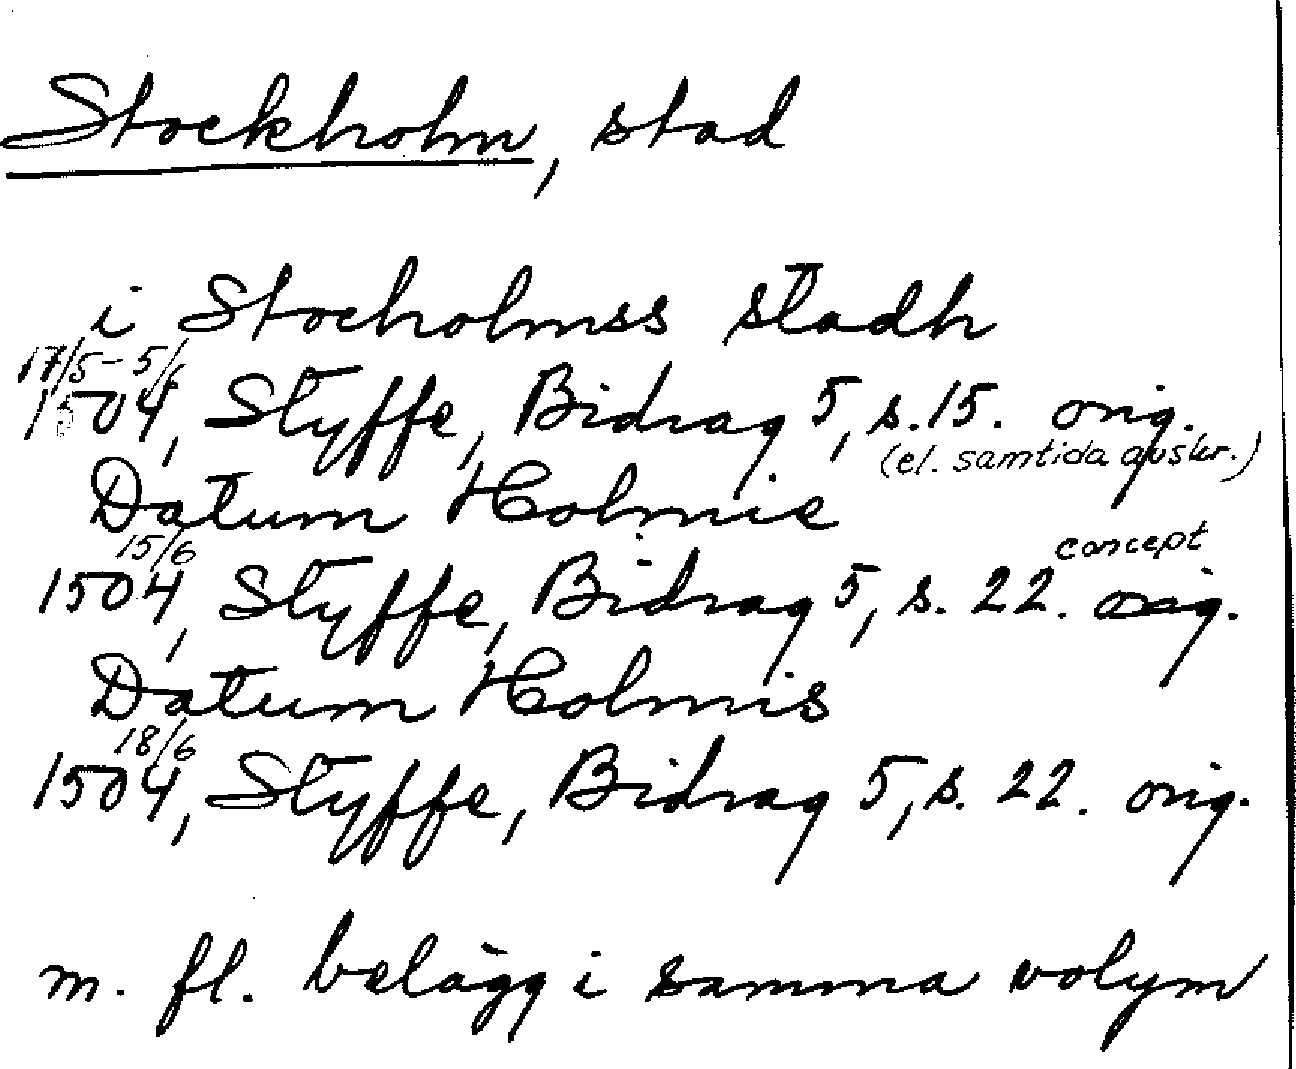 Stockholm, stad
i Stocholmss stadh
17/5-5/6
1504, Styffe, Bidrag 5, s. 15. orig.
(el. samtida avskr.)
Datum Holmie
15/6
concept
1504, Styffe, Bidrag 5, s. 22. orig.
Datum Holmis
18/6
1504, Styffe, Bidrag 5, s. 22. orig.
m. fl. belägg i samma volym